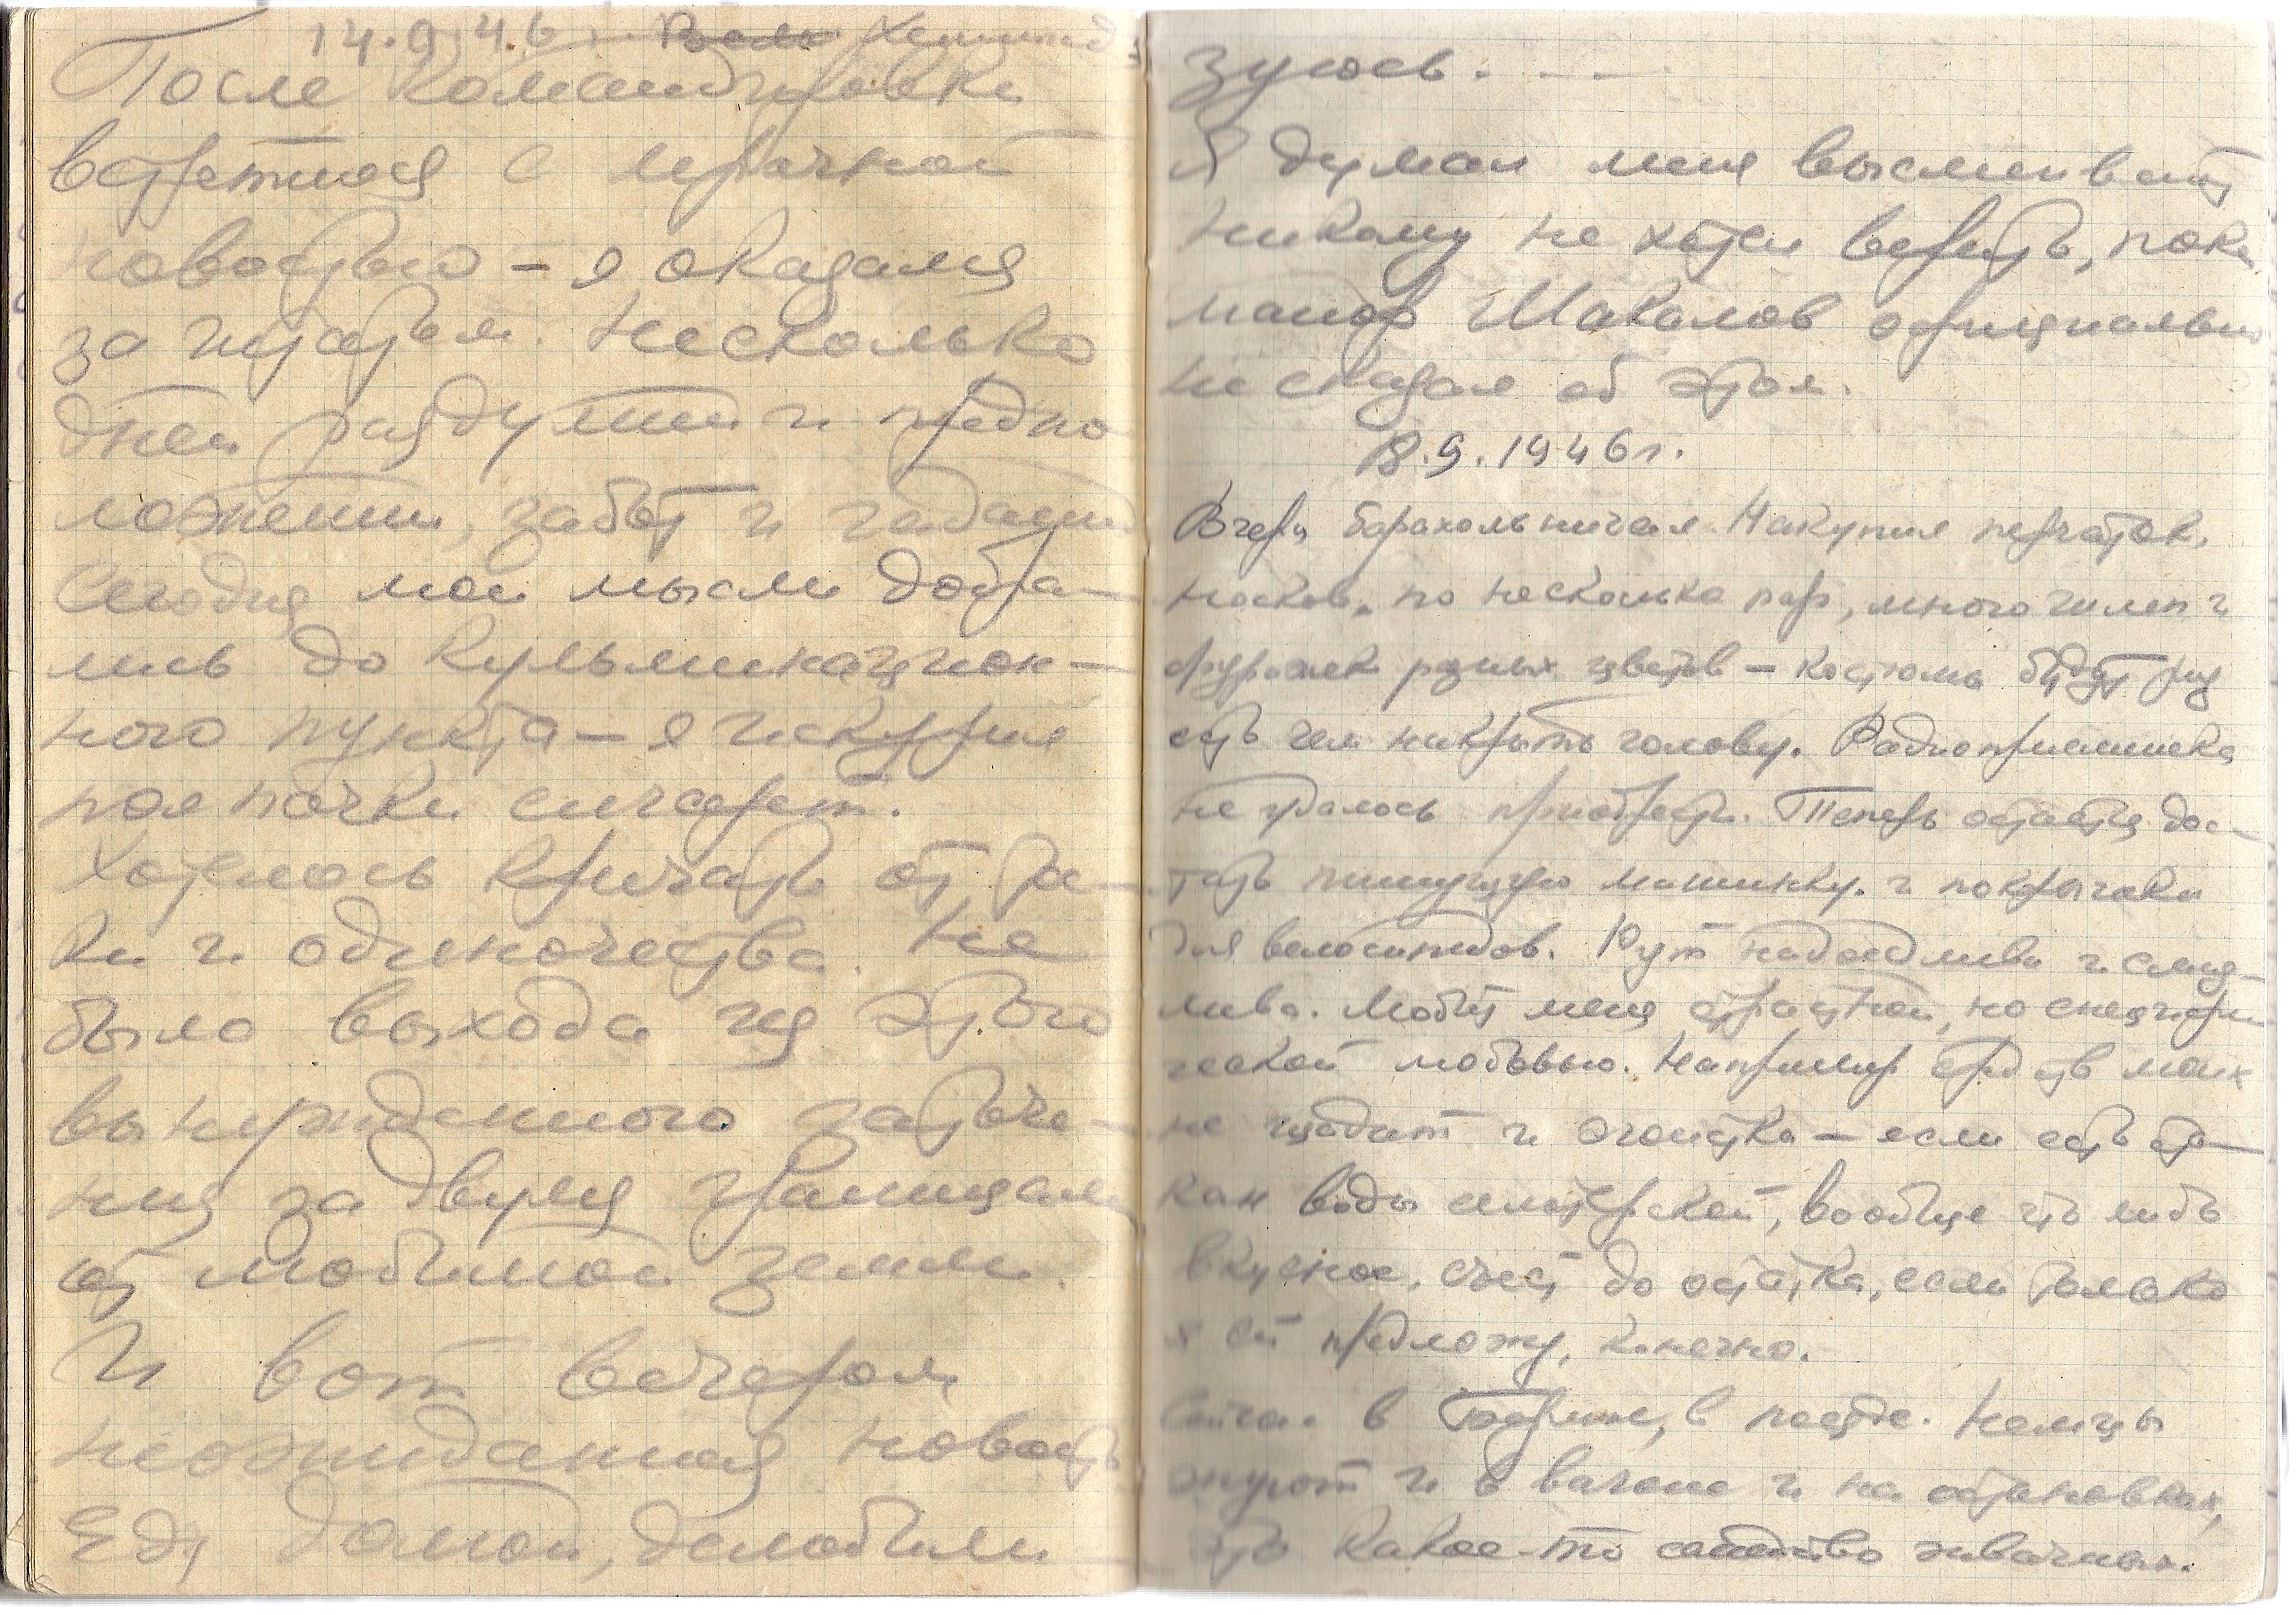 14.9.46. Хеннигсд
После командировки
встретился с мрачной
новостью – я оказался
за штатом. Несколько
дней раздумий и предпо
ложений, забот и гаданий
Сегодня мои мысли добра–
лись до кульминацион–
ного пункта – я искурил
пол пачки сигарет.
Хотелось кричать от
ки и одиночества. Не
было выхода из этого
вынужденного заточе–
ния за двумя границами
от любимой земли.
И вот вечером
неожиданная новость
Еду домой, демобили–
зуюсь.
Я думал меня высмеивают
никому не хотел верить, пока
майор Шакалов официально
не сказал об этом.
18.9.1946г.
Вчера барахольничал. Накупил перчаток,
носков, по несколько пар, много шляп и
фуражек разных цветов – костюмы будут
есть чем накрыть голову. Радиоприемника
не удалось приобрести. Теперь остается дос–
тать пишущую машинку и покрышки
для велосипедов. Рут надоедлива и слез–
лива. Любит меня страстной, но специфи
ческой любовью. Например средств моих
не щадит и эгоистка – если есть ста–
кан воды сельтерской, вообще что либо
вкусное, съест до остатка, если только
я ей предложу, конечно.
Сейчас в Берлине, в поезде. Немцы
жуют и в вагоне и на остановках,
это какое-то семейство жвачных.